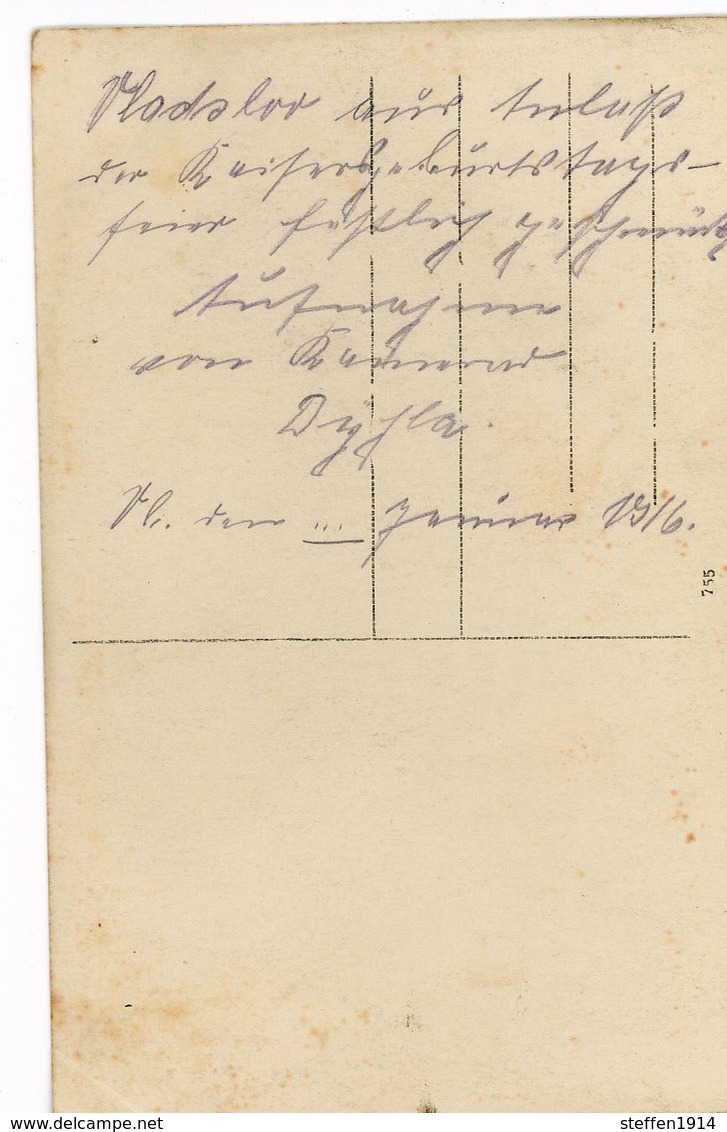 Vladslo aus Anlaß
der Kaisersgeburtstags-
feier festlich geschmückt
Aufnahme
von Kamerad
Vl. den ... Januar 1916.
755
steffen1914